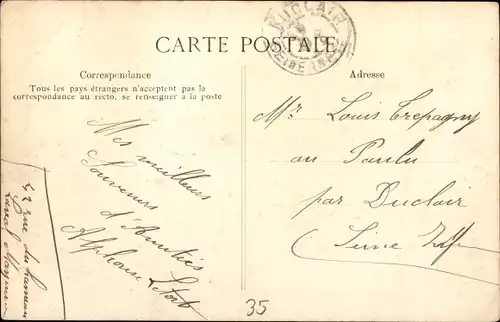 DUCLAIR
CARTE POSTALE
Correspondance
Tous les pays étrangers n'acceptent pas la
correspondance au recto, se renseigner à la poste
Mes meilleurs
Souvenirs
d'Amitiés
Alphonse
42 rue du
Laval Mayenne
Adresse
Mr Louis Trepagny
au Paulu
par Duclair
(Seine Inf
35